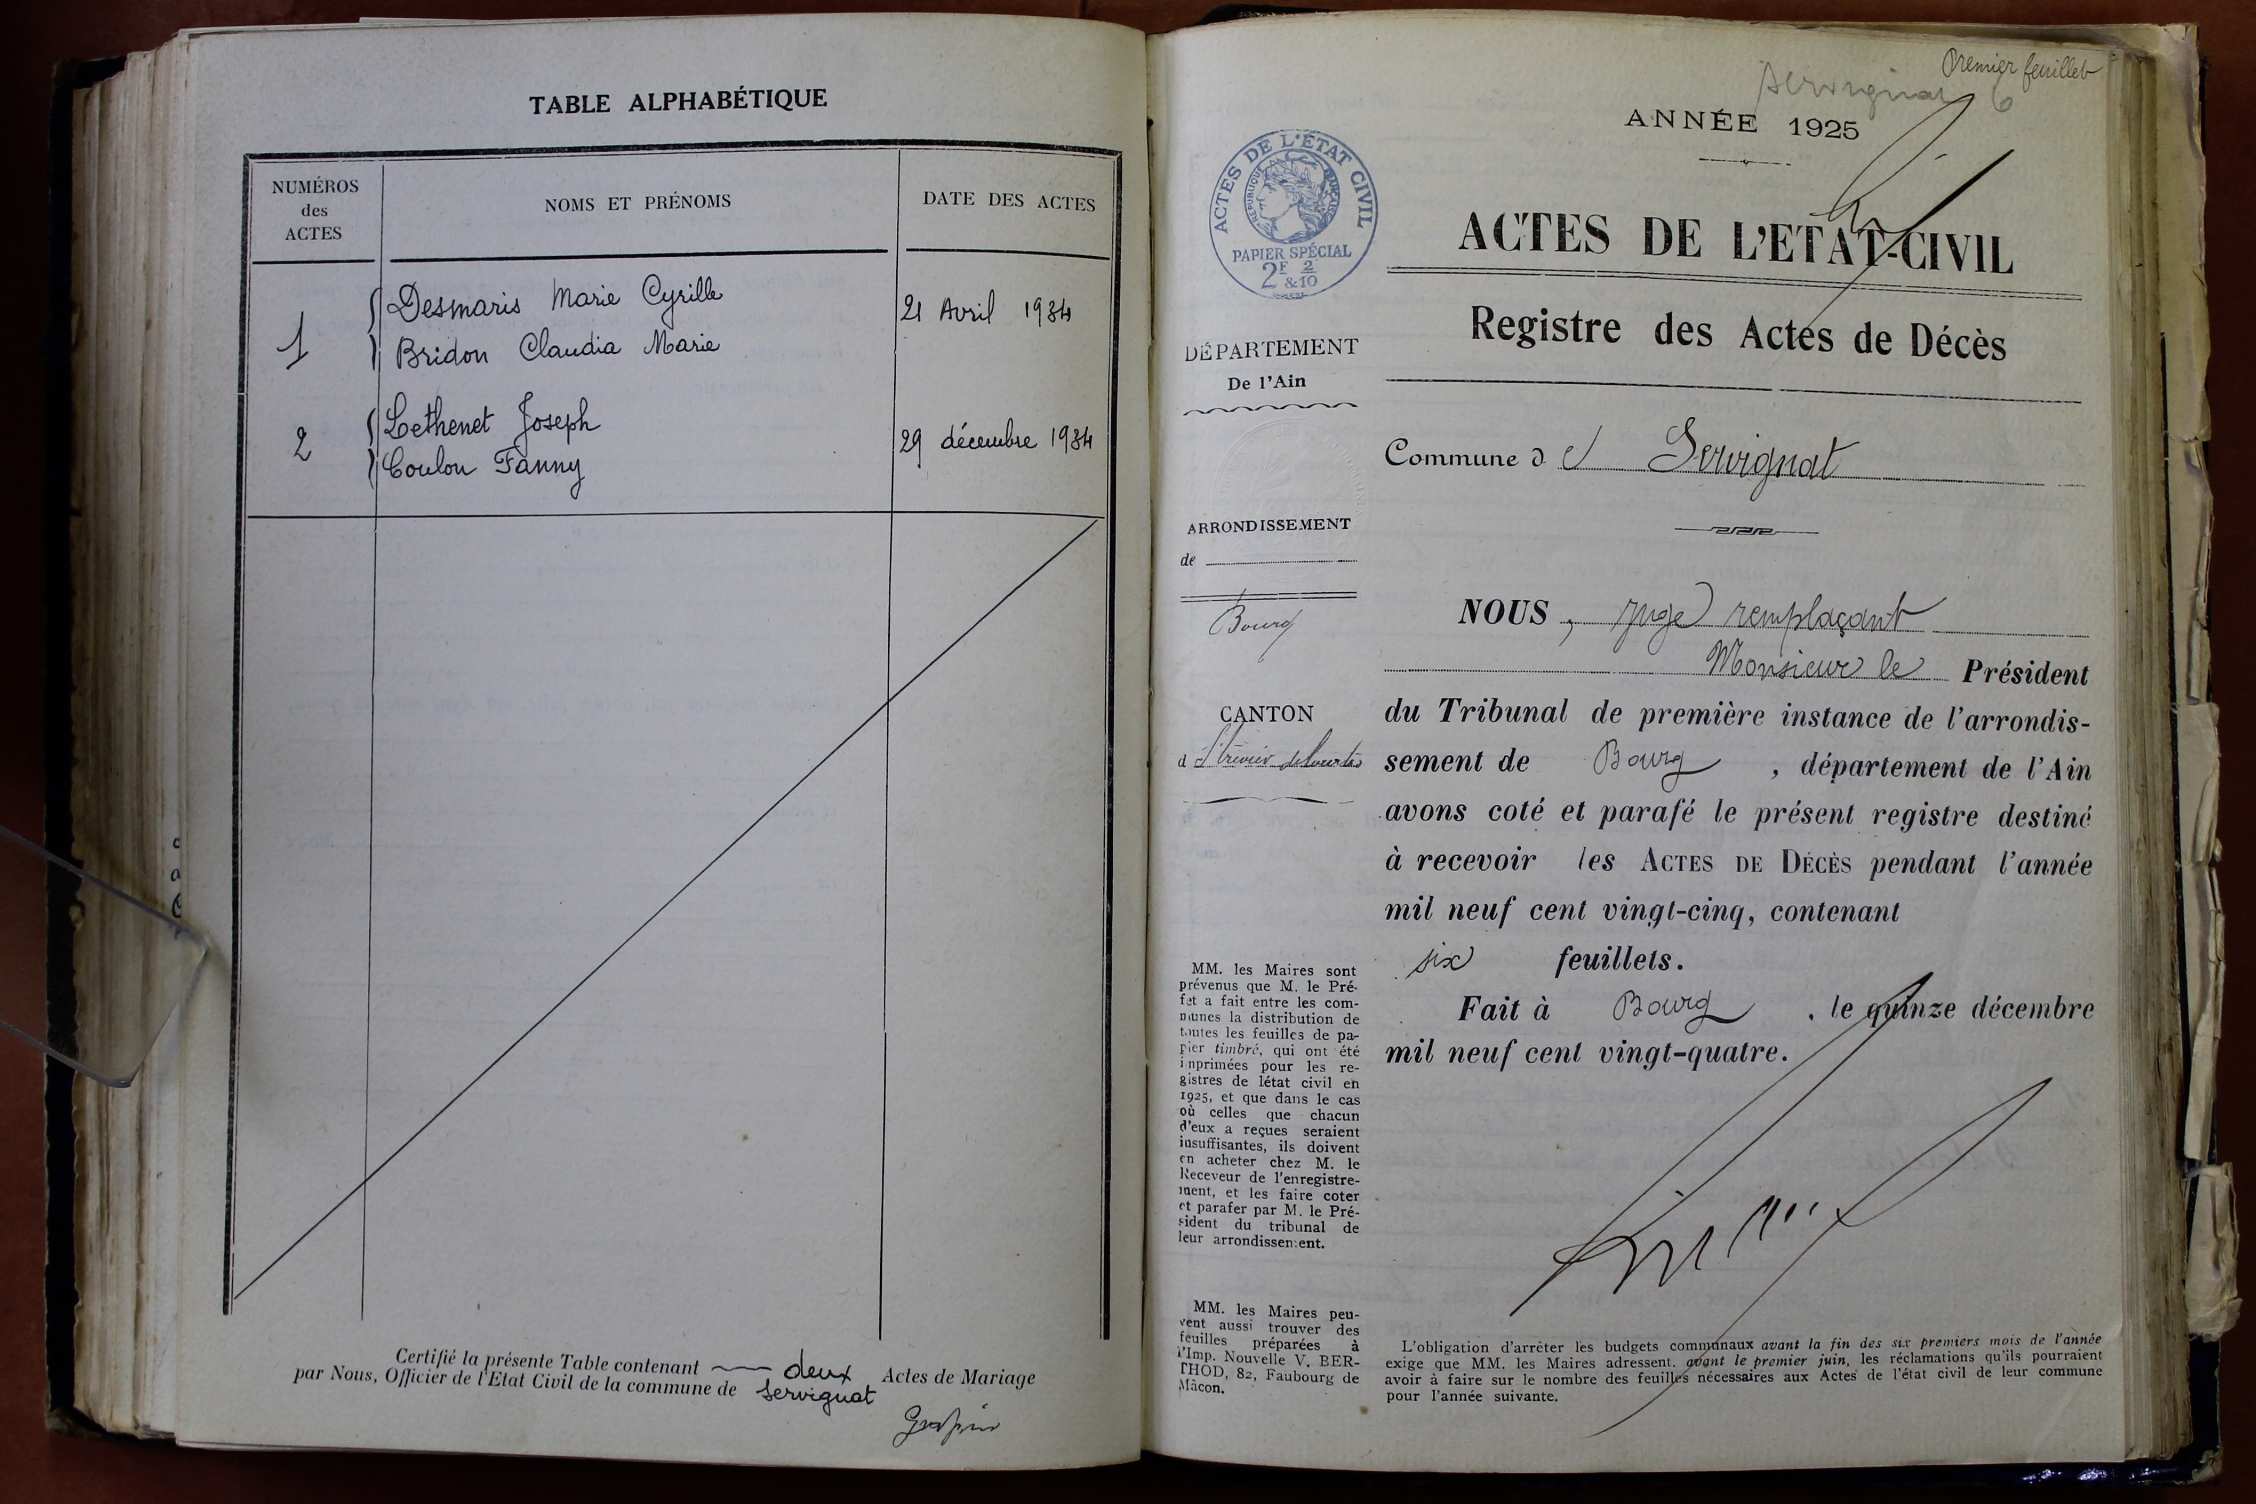 TABLE ALPHABÉTIQUE
NUMÉROS
des
ACTES
NOMS ET PRÉNOMS
DATE DES ACTES
1
Desmaris Marie Cyrille
Bridon Claudia Marie
21 Avril 1934
2
Lethenet Joseph
Coulon Fanny
29 décembre 1934
Certifié la présente Table contenant deux Actes de Mariage
par Nous, Officier de l'Etat Civil de la commune de Servignat
Premier feuillet
Servignat 6
ANNÉE 1925
ACTES DE L'ÉTAT CIVIL
RÉPUBLIQUE FRANÇAISE
PAPIER SPÉCIAL
2F 2
&10
ACTES DE L'ETAT-CIVIL
Registre des Actes de Décès
DÉPARTEMENT
De l'Ain
ARRONDISSEMENT
de
Bourg
CANTON
d St Trivier de Courtes
MM. les Maires sont
prévenus que M. le Pré-
fet a fait entre les com-
munes la distribution de
toutes les feuilles de pa-
pier timbré, qui ont été
imprimées pour les re-
gistres de létat civil en
1925, et que dans le cas
où celles que chacun
d'eux a reçues seraient
insuffisantes, ils doivent
en acheter chez M. le
Receveur de l'enregistre-
ment, et les faire coter
et parafer par M. le Pré-
sident du tribunal de
leur arrondissement.
MM. les Maires peu-
vent aussi trouver des
feuilles préparées à
l'Imp. Nouvelle V. BER-
THOD, 82, Faubourg de
Mâcon.
Commune de Servignat
NOUS, Juge remplaçant
Monsieur le Président
du Tribunal de première instance de l'arrondis-
sement de Bourg, département de l'Ain
avons coté et parafé le présent registre destiné
à recevoir les ACTES DE DÉCÈS pendant l'année
mil neuf cent vingt-cinq, contenant
six feuillets.
Fait à Bourg, le quinze décembre
mil neuf cent vingt-quatre.
L'obligation d'arrêter les budgets communaux avant la fin des six premiers mois de l'année
exige que MM. les Maires adressent. avant le premier juin, les réclamations qu'ils pourraient
avoir à faire sur le nombre des feuilles nécessaires aux Actes de l'état civil de leur commune
pour l'année suivante.